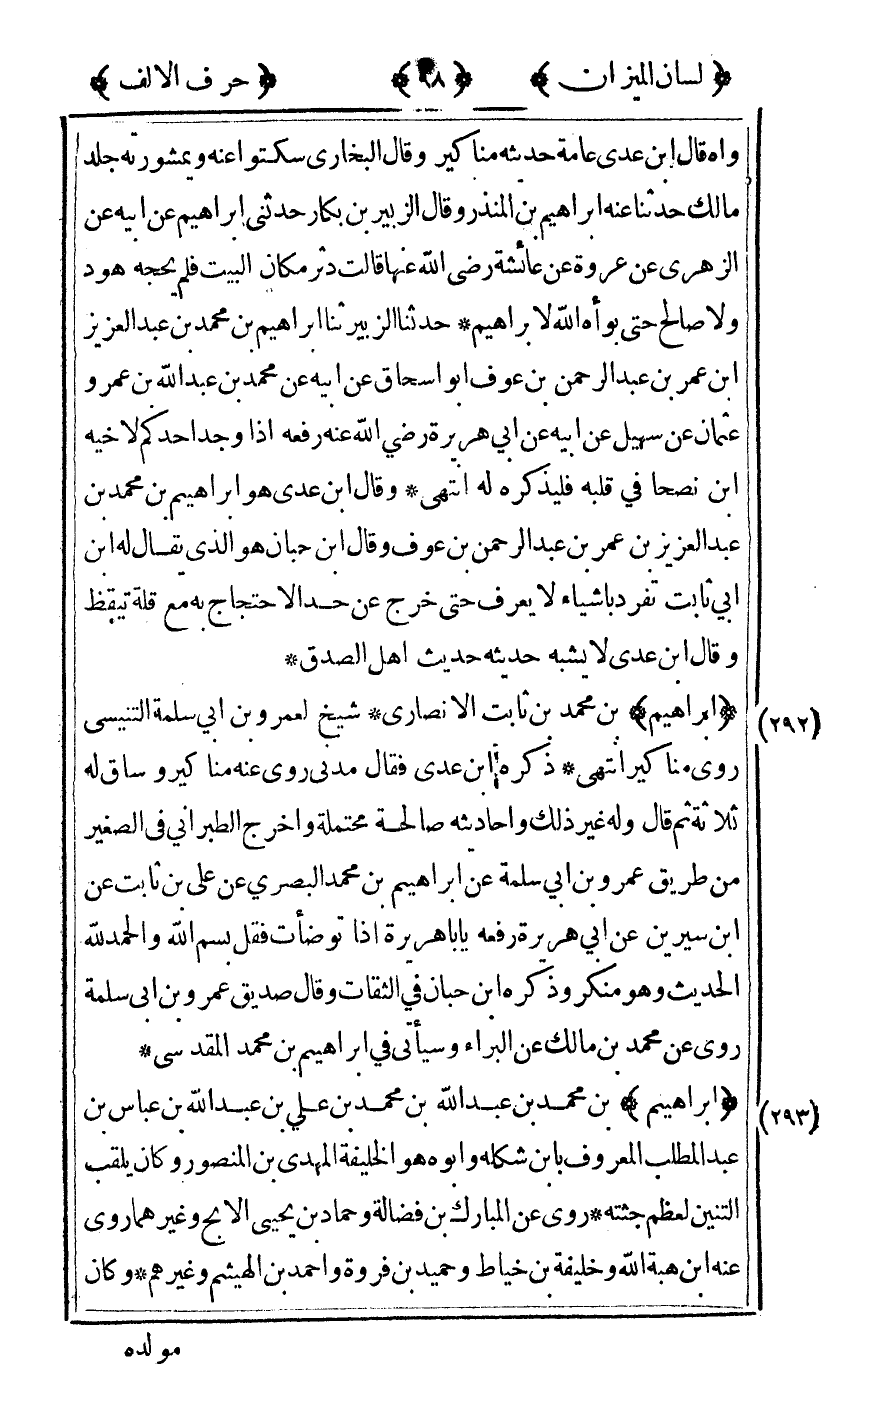 ﴿ لسان الميزان ﴾ ﴿ ٩٨ ﴾ ﴿ حرف الالف ﴾
واه قال ابن عدى عامة حديثه مناكير وقال البخارى سكتوا عنه وبمشورته جلد
مالك حدثنا عنه ابراهيم بن المنذر وقال الزبير بن بكار حدثنى ابراهيم عن ابيه عن
الزهرى عن عروة عن عائشة رضى الله عنها قالت دثر مكان البيت فلم يحجه هود
ولا صالح حتى بوأه الله لابراهيم * حدثنا الزبير ثنا ابراهيم بن محمد بن عبدالعزيز
ابن عمر بن عبدالرحمن بن عوف ابو اسحاق عن ابيه عن محمد بن عبدالله بن عمرو
عثمان عن سهيل عن ابيه عن ابي هريرة رضي الله عنه رفعه اذا وجد احدكم لاخيه
ابن نصحا في قلبه فليذكره له انتهى * وقال ابن عدى هو ابراهيم بن محمد بن
عبدالعزيز بن عمر بن عبدالرحمن بن عوف وقال ابن حبان هو الذي يقال له ابن
ابي ثابت تفرد باشياء لا يعرف حتى خرج عن حد الاحتجاج به مع قلة تيقظ
وقال ابن عدى لا يشبه حديثه حديث اهل الصدق *
﴿ ابراهيم ﴾ بن محمد بن ثابت الانصارى * شيخ لعمرو بن ابي سلمة التنيسى (٢٩٢)
روى مناكير انتهى * ذكره ابن عدى فقال مدنى روى عنه مناكير و ساق له
ثلاثة ثم قال وله غير ذلك واحاديثه صالحة محتملة واخرج الطبراني فى الصغير
من طريق عمرو بن ابي سلمة عن ابراهيم بن محمد البصري عن على بن ثابت عن
ابن سيرين عن ابي هريرة رفعه ياباهريرة اذا توضأت فقل بسم الله والحمد لله
الحديث وهو منكر وذكره ابن حبان في الثقات وقال صديق عمرو بن ابى سلمة
روى عن محمد بن مالك عن البراء وسيأتى في ابراهيم بن محمد المقدسى *
﴿ ابراهيم ﴾ بن محمد بن عبدالله بن محمد بن علي بن عبدالله بن عباس بن (٢٩٣)
عبدالمطلب المعروف بابن شكله وابوه هو الخليفة المهدى بن المنصور وكان يلقب
التنين لعظم جثته * روى عن المبارك بن فضالة وحماد بن يحيى الابح وغيرهما روى
عنه ابن هبة الله وخليفة بن خياط وحميد بن فروة واحمد بن الهيثم وغيرهم * وكان
مولده